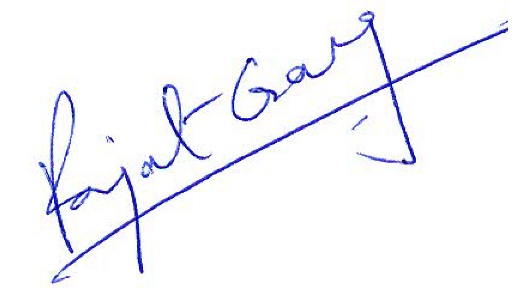 Rajat Garg